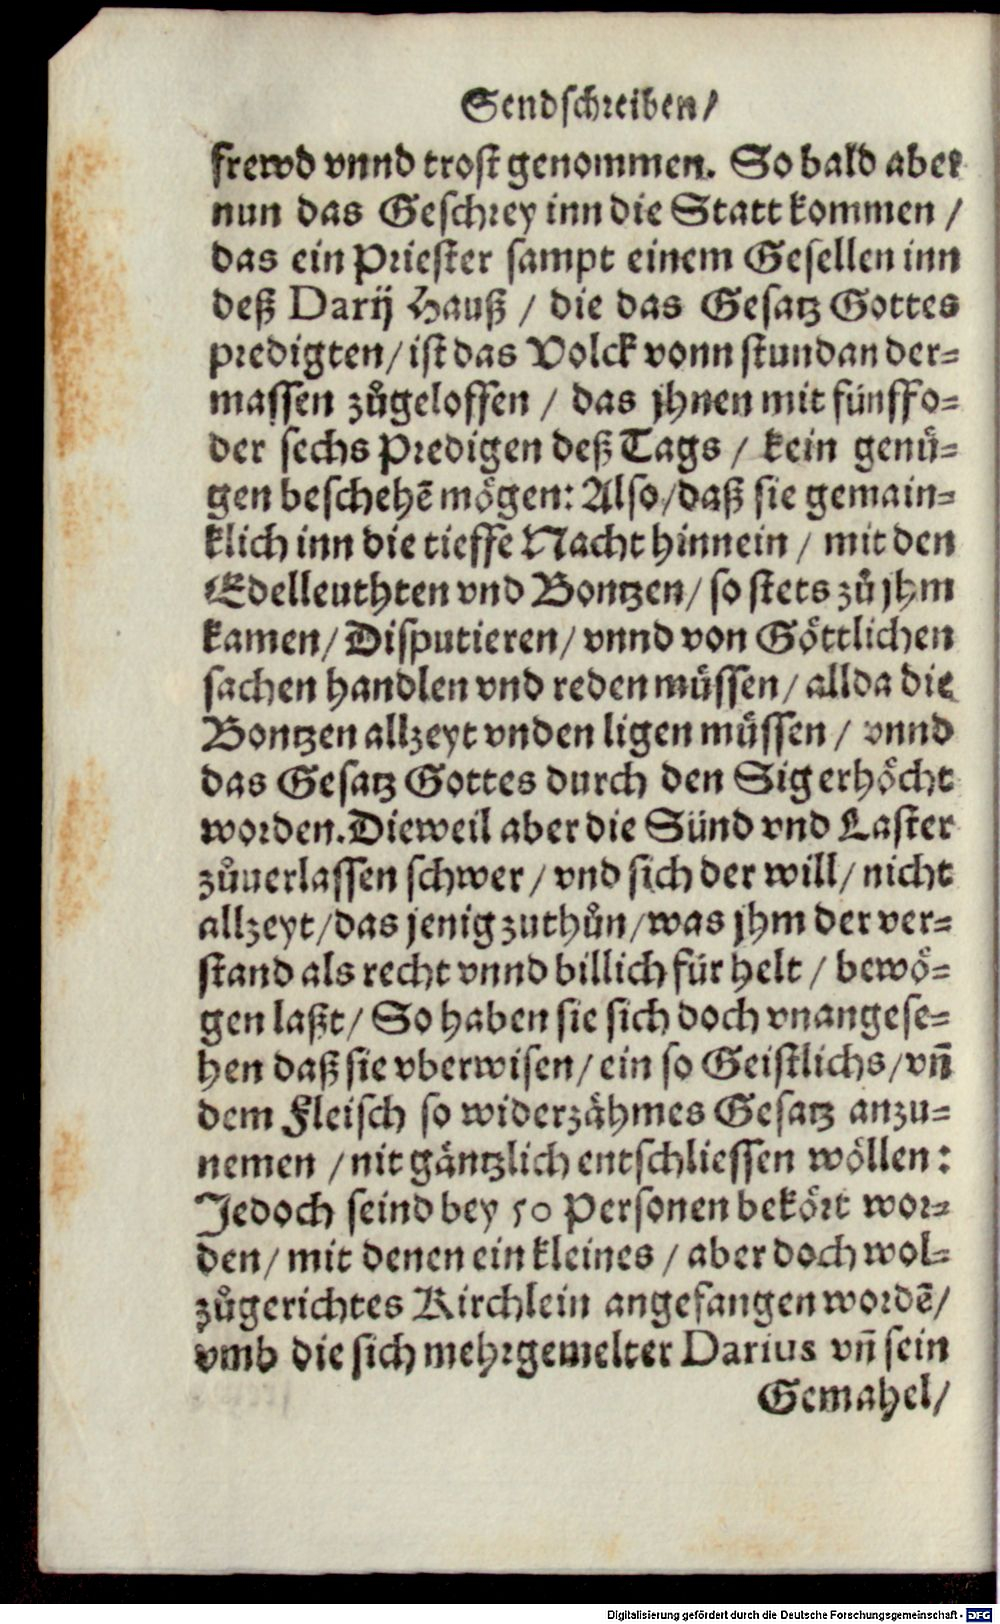 Sendschreiben/
frewd vnnd trost genommen. So bald aber
nun das Geschrey inn die Statt kommen /
das ein Priester sampt einem Gesellen inn
deß Darij Hauß / die das Gesatz Gottes
predigten/ ist das Volck vonn stundan der-
massen zůgeloffen / das jhnen mit fünff o-
der sechs Predigen deß Tags / kein genü-
gen beschehẽ mögen: Also/daß sie gemain-
klich inn die tieffe Nacht hinnein / mit den
Edelleuthten vnd Bontzen/ so stets zů jhm
kamen/ Disputieren/ vnnd von Göttlichen
sachen handlen vnd reden müssen/ allda die
Bontzen allzeyt vnden ligen müssen / vnnd
das Gesatz Gottes durch den Sig erhöcht
worden. Dieweil aber die Sünd vnd Laster
zůuerlassen schwer / vnd sich der will/ nicht
allzeyt/das jenig zuthůn/was jhm der ver-
stand als recht vnnd billich für helt / bewö-
gen laßt/ So haben sie sich doch vnangese-
hen daß sie vberwisen/ ein so Geistlichs/vñ
dem Fleisch so widerzähmes Gesatz anzu-
nemen /nit gäntzlich entschliessen wöllen:
Jedoch seind bey 50 Personen bekört wor-
den/ mit denen ein kleines / aber doch wol-
zůgerichtes Kirchlein angefangen wordẽ/
vmb die sich mehrgemelter Darius vñ sein
Gemahel/
Digitalisierung gefördert durch die Deutsche Forschungsgemeinschaft - DFG